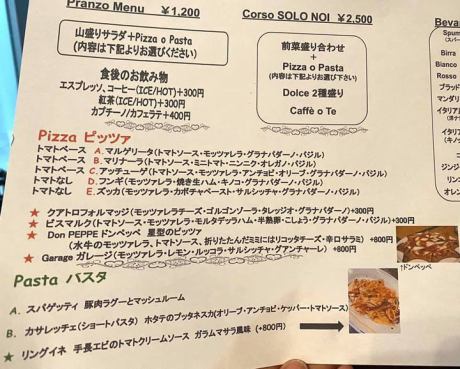 Pranzo Menu ¥1,200
山盛りサラダ+Pizza o Pasta
(内容は下記よりお選びください)
食後のお飲み物
エスプレッソ、コーヒー(ICE/HOT)+300円
紅茶(ICE/HOT)+300円
カプチーノ/カフェラテ+400円
Corso SOLO NOI ¥2,500
前菜盛り合わせ
+
Pizza o Pasta
(内容は下記よりお選び下さい)
+
Dolce 2種盛り
Caffè o Te
Beva
Spum
(スパー
Birra
Bianco
Rosso
ブラッド
マンダ
イタリア
イタリア
(キノッ
コーラ
ジンジ
Pizza ピッツァ
トマトベース A.マルゲリータ(トマトソース・モッツァレラ・グラナパダーノ・バジル)
トマトベース B.マリナーラ(トマトソース・ミニトマト・ニンニク・オレガノ・バジル)
トマトベース C.アッチューゲ(トマトソース・モッツァレラ・アンチョビ・オリーブ・グラナパダーノ・バジル)
トマトなし D.フンギ(モッツァレラ・焼き生ハム・キノコ・グラナパダーノ・バジル)
トマトなし E.ズッカ(モッツァレラ・カボチャペースト・サルシッチャ・グラナパダーノ・バジル)
★ クアトロフォルマッジ(モッツァレラチーズ・ゴルゴンゾーラ・タレッジオ・グラナパダーノ)+300円
★ ビスマルク(トマトソース・モッツァレラ・モルタデッラハム・半熟卵・こしょう・グラナパダーノ)+300円
★ Don PEPPE ドンペッペ 星型のピッツァ
(水牛のモッツァレラ、トマトソース、折りたたんだミミにはリコッタチーズ・辛口サラミ) +800円
★ Garage ガレージ(モッツァレラ・レモン・ルッコラ・サルシッチャ・グアンチャーレ) +800円
↑ドンペッペ
Pasta パスタ
A. スパゲッティ 豚肉ラグーとマッシュルーム
B. カサレッチェ(ショートパスタ) ホタテのプッタネスカ(オリーブ・アンチョビ・ケッパー・トマトソース)
★ リングイネ 手長エビのトマトクリームソース ガラムマサラ風味 (+800円)